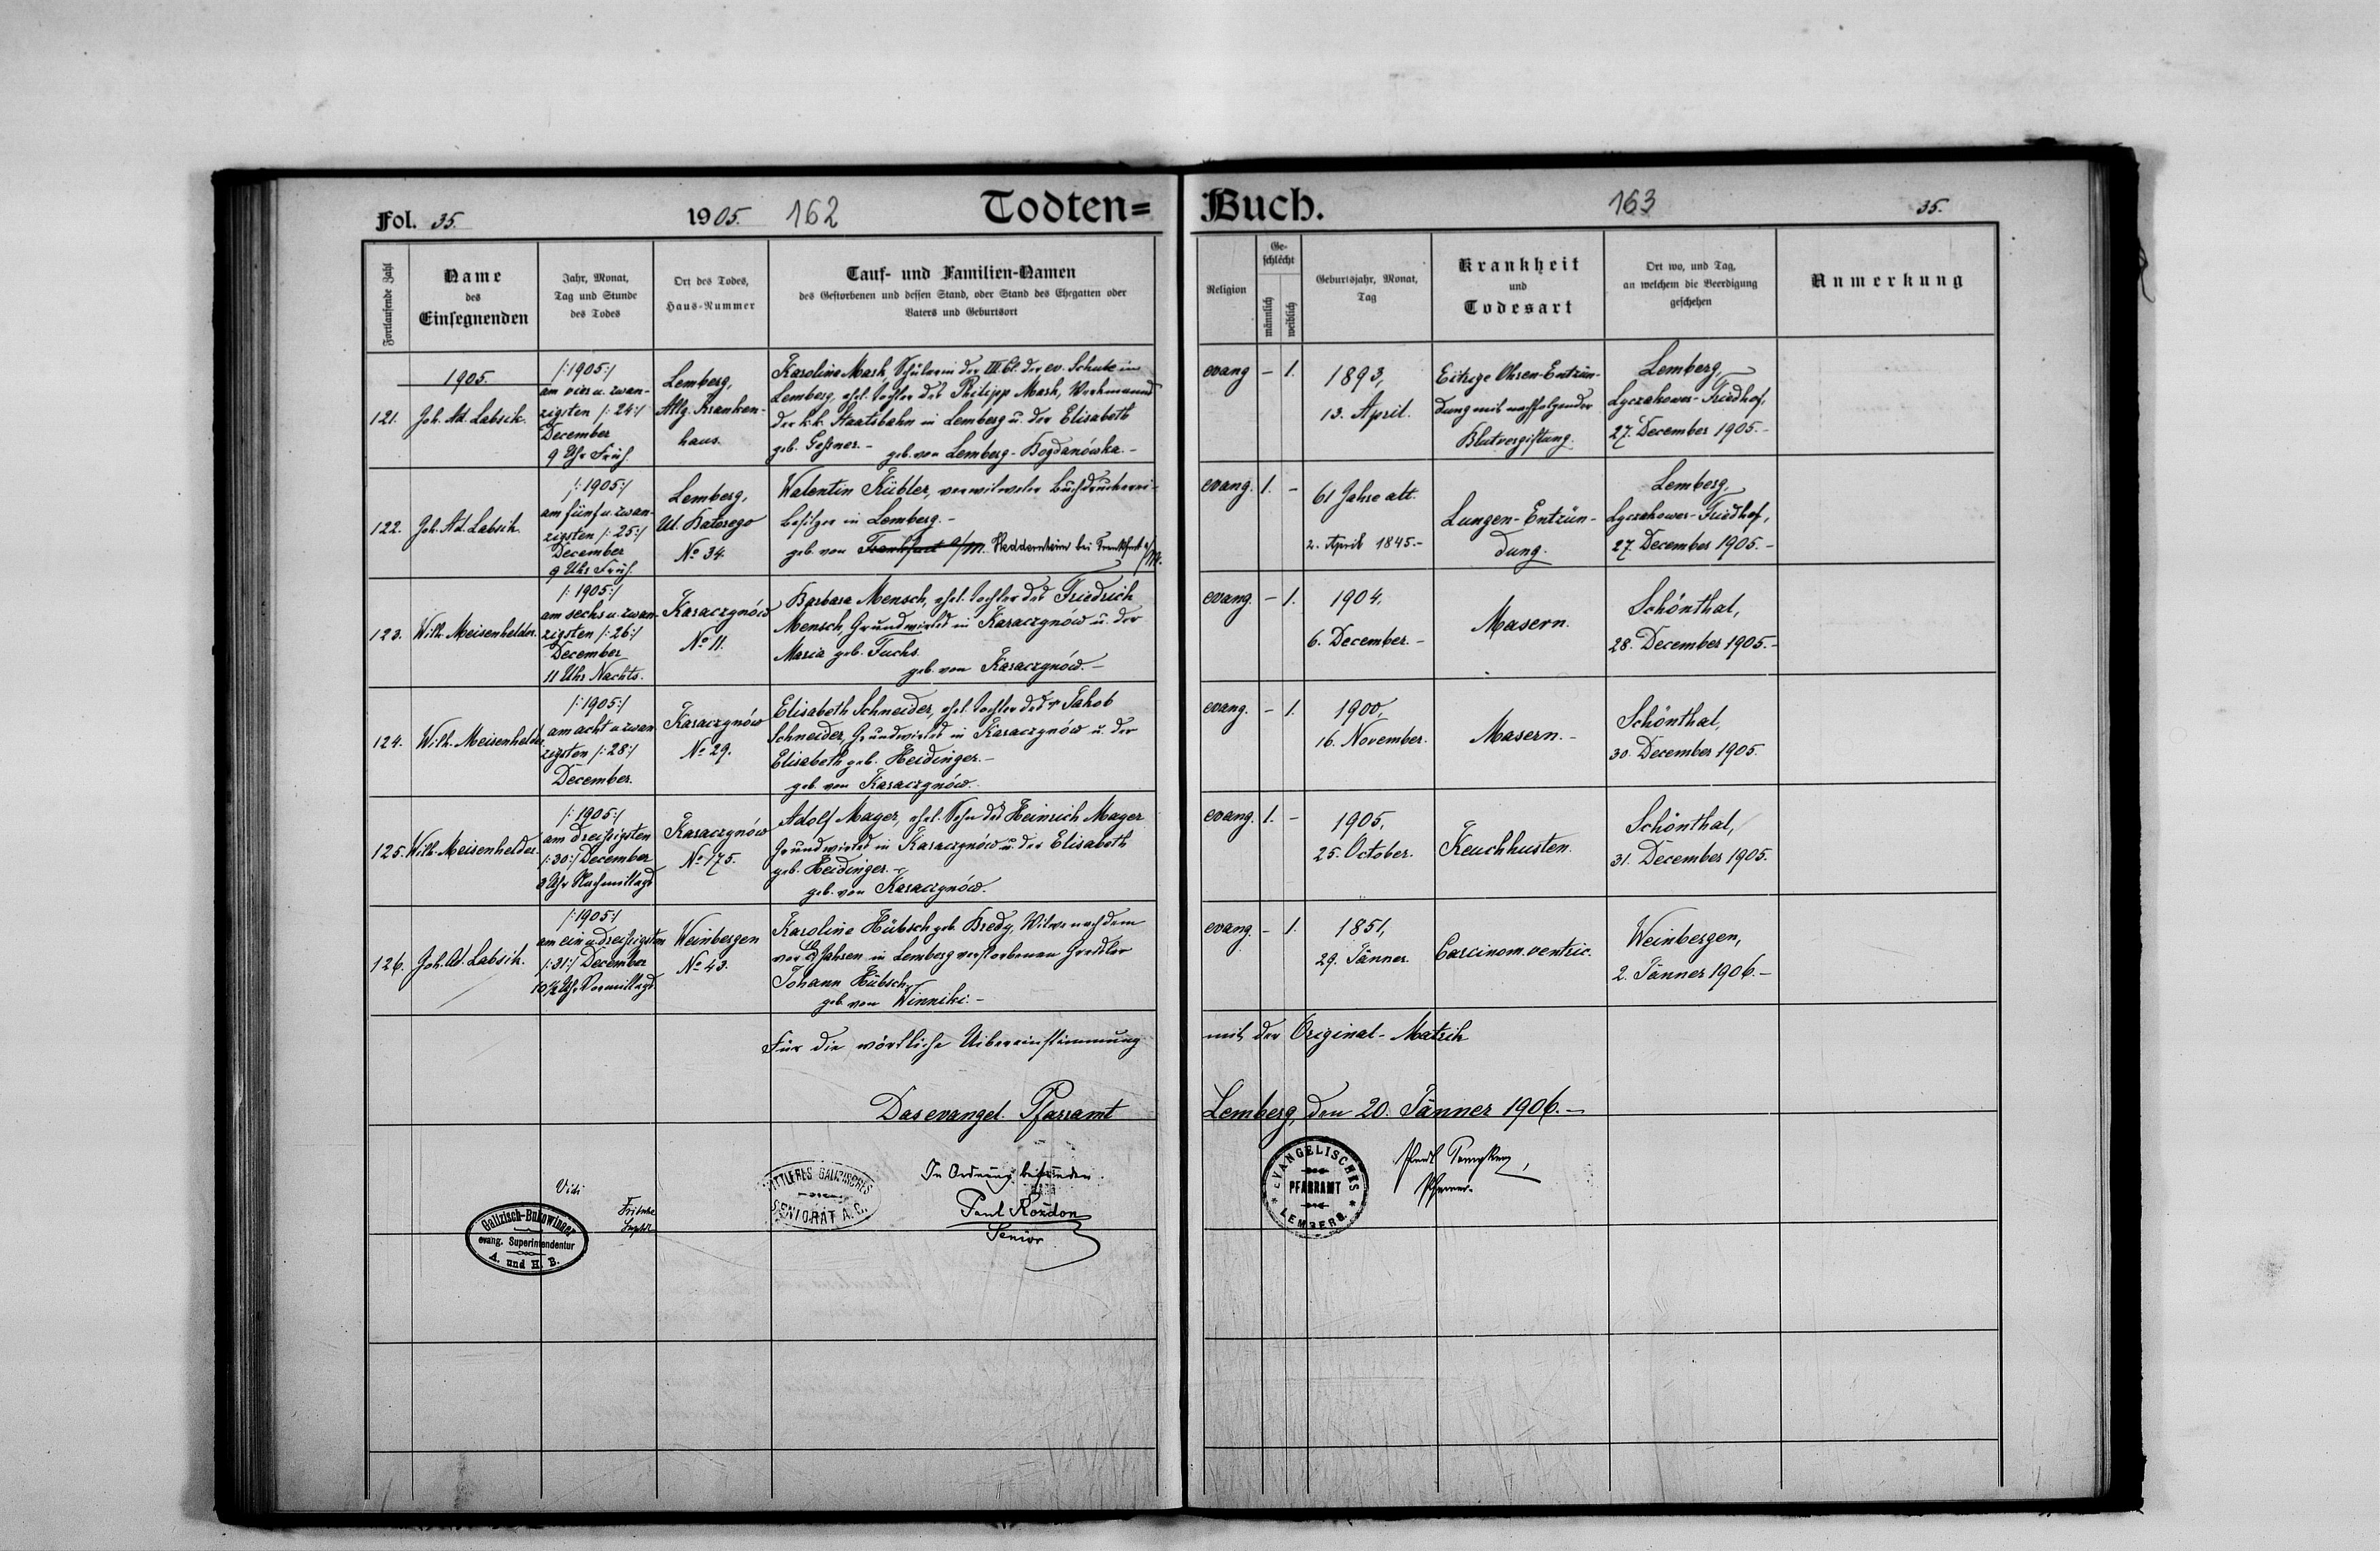 Fol. 35.
1905.
162
Todten=
Buch.
163
35.
Fortlaufende Zahl
Name
des
Einsegnenden
Jahr, Monat,
Tag und Stunde
des Todes
Ort des Todes,
Haus-Nummer
Tauf- und Familien-Namen
des Gestorbenen und dessen Stand, oder Stand des Ehegatten oder
Vaters und Geburtsort
Religion
Ge-
schlecht
männlich
weiblich
Geburtsjahr, Monat,
Tag
Krankheit
und
Todesart
Ort wo, und Tag,
an welchem die Beerdigung
geschehen
Anmerkung
1905.
121.
Joh. Ad. Labsik.
/:1905:/
am vier u. zwan-
zigsten /:24:/
December
9 Uhr Früh.
Lemberg,
Allg. Kranken-
haus.
Karoline Mash, Schülerin der III. Cl. der ev. Schule in
Lemberg, ehel. Tochter des Philipp Mash, Werkmanns
der k.k. Staatsbahn in Lemberg u. der Elisabeth
geb. Geßner. - geb. von Lemberg-Bogdanówka. -
evang - 1.
1893,
13. April.
Eitrige Ohren-Entzün-
dung mit nachfolgender
Blutvergiftung.
Lemberg,
Lyczakower-Friedhof,
27. December 1905. -
122.
Joh. Ad. Labsik.
/:1905:/
am fünf u. zwan-
zigsten /:25:/
December
9 Uhr Früh.
Lemberg,
Ul. Batorego
No 34.
Valentin Kübler, verwitweter Buchdruckerei-
besitzer in Lemberg. -
geb. von Frankfurt a/M. Heddernheim bei Frankfurt a/M.
evang. 1. -
61 Jahre alt.
2. April 1845. -
Lungen-Entzün-
dung.
Lemberg,
Lyczakower-Friedhof,
27. December 1905. -
123.
Wilh. Meisenhelder.
/:1905:/
am sechs u. zwan-
zigsten /:26:/
December
11 Uhr Nachts.
Karaczynów
No 11.
Barbara Mensch, ehel. Tochter des Friedrich
Mensch, Grundwirts in Karaczynów u. der
Maria geb. Fuchs.
geb. von Karaczynów. -
evang. - 1.
1904.
6. December. -
Masern.
Schönthal,
28. December 1905. -
124.
Wilh. Meisenhelder.
/:1905:/
am acht u. zwan-
zigsten /:28:/
December.
Karaczynów
No 29.
Elisabeth Schneider, ehel. Tochter des Jakob
Schneider, Grundwirts in Karaczynów u. der
Elisabeth geb. Heidinger. -
geb. von Karaczynów.
evang. - 1.
1900,
16. November.
Masern. -
Schönthal,
30. December 1905.
125.
Wilh. Meisenhelder.
/:1905:/
am dreißigsten
/:30:/ December
Uhr Nachmittags
Karaczynów
No 175.
Adolf Mayer, ehel. Sohn des Heinrich Mayer
Grundwirts in Karaczynów u. der Elisabeth
geb. Heidinger. -
geb. von Karaczynów.
evang. 1. -
1905,
25. October.
Keuchhusten.
Schönthal,
31. December 1905.
126.
Joh. Ad. Labsik.
/:1905:/
am ein u. dreißigsten
/:31:/ December
10½ Uhr Vormittags
Weinbergen
No 43.
Karoline Hübsch geb. Bredy, Witwe nach dem
vor Jahren in Lemberg verstorbenen
Johann Hübsch,
geb. von Winniki. -
evang. - 1.
1851,
29. Jänner.
Carcinom. ventric.
Weinbergen,
2. Jänner 1906. -
Für die wörtliche Uibereinstimmung mit der Original-Matrik
Das evangel. Pfarramt Lemberg, den 20. Jänner 1906. -
Vidi
Galizisch-Bukowinaer
evang. Superintendentur
A. und H. B.
MITTLERES GALIZISCHES
SENIORAT A. C.
In Ordnung befunden.
Paul Kozdon
Senior
EVANGELISCHES
PFARRAMT
LEMBERG
Pfarrer.